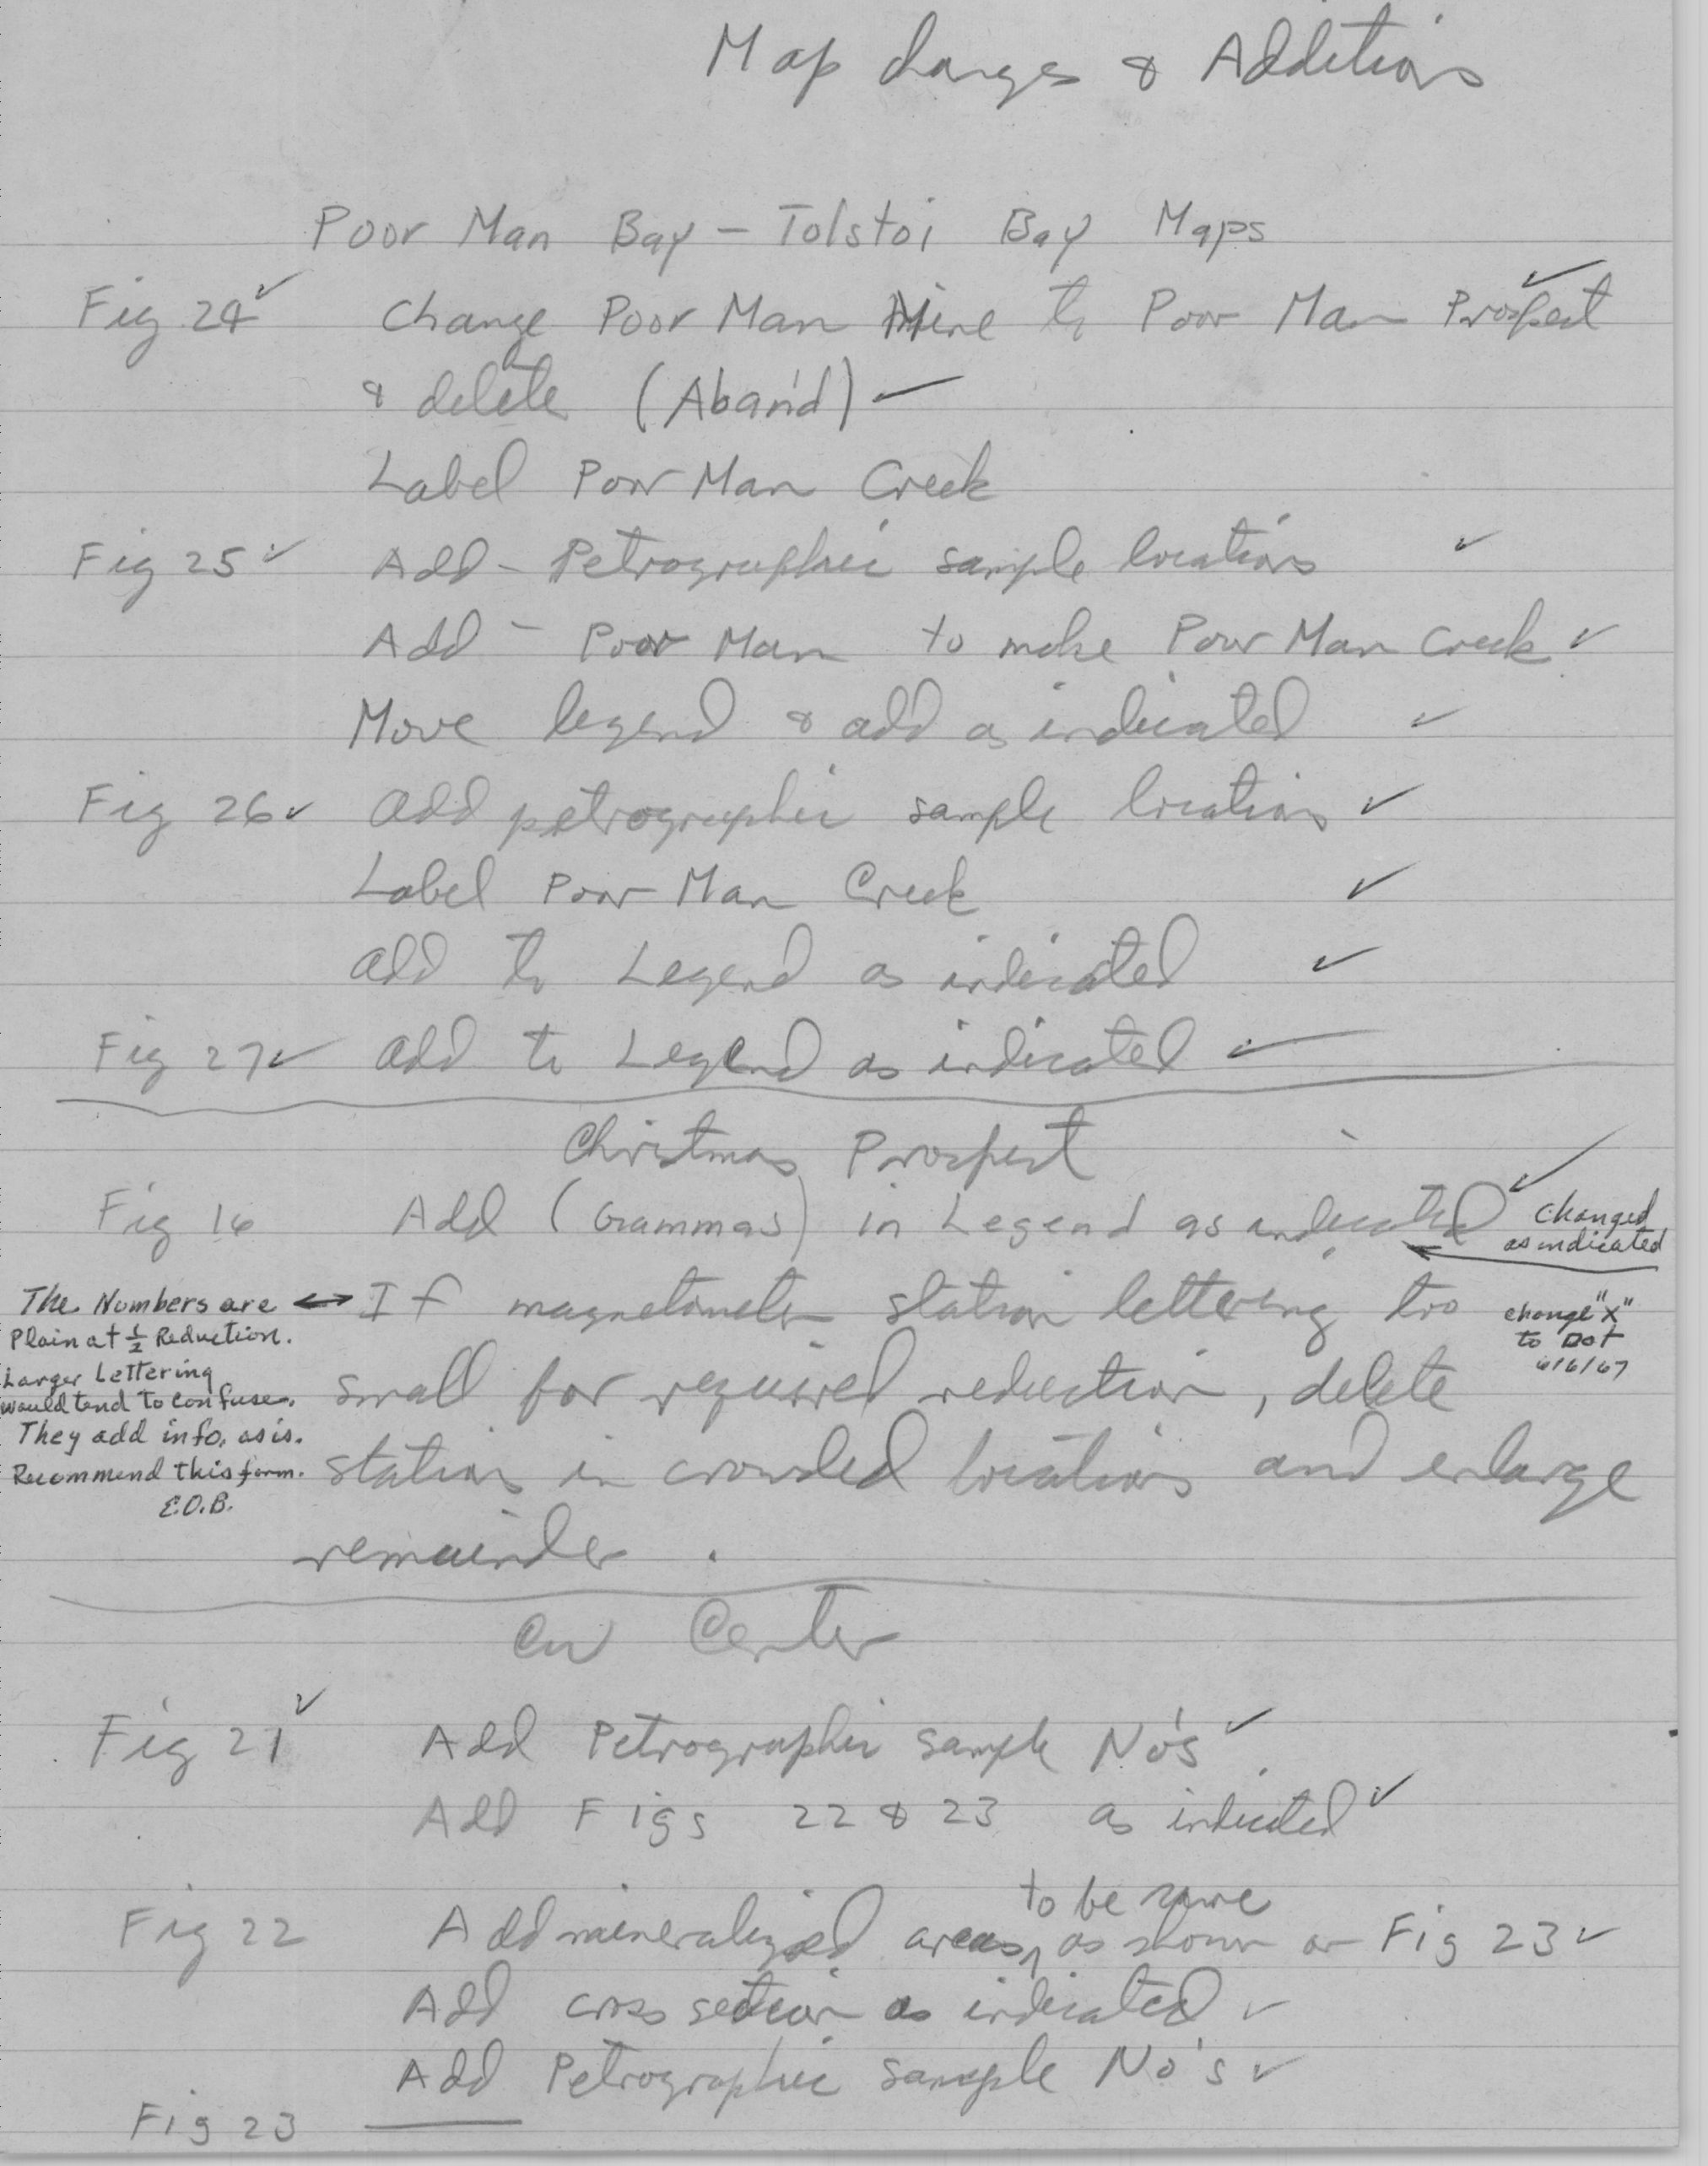 Map changes & Additions
Poor Man Bay - Tolstoi Bay Maps
Fig 24 ✓ Change Poor Man Mine to Poor Man Prospect ✓
& delete (Aban'd) ✓
Label Poor Man Creek
Fig 25 ✓ Add - Petrographic sample locations ✓
Add - Poor Man to make Poor Man Creek ✓
Move legend & add as indicated ✓
Fig 26 ✓ Add petrographic sample locations ✓
Label Poor Man Creek ✓
Add to Legend as indicated ✓
Fig 27 ✓ Add to Legend as indicated ✓
Christmas Prospect
Fig 16 Add (Grammas) in Legend as indicated ✓
changed
as indicated
If magnetometer station lettering too
small for required reduction, delete
stations in crowded locations and enlarge
remainder .
The Numbers are
Plain at 1/2 Reduction.
Larger Lettering
would tend to confuse.
They add info, as is.
Recommend this form.
E.O.B.
change "X"
to Dot
6/6/67
Cu Center
Fig 21 ✓ Add Petrographic sample No's ✓
Add Figs 22 & 23 as indicated ✓
Fig 22 Add mineralized areas, to be same as shown on Fig 23 ✓
Add cross section as indicated ✓
Add Petrographic sample No's ✓
Fig 23 ———